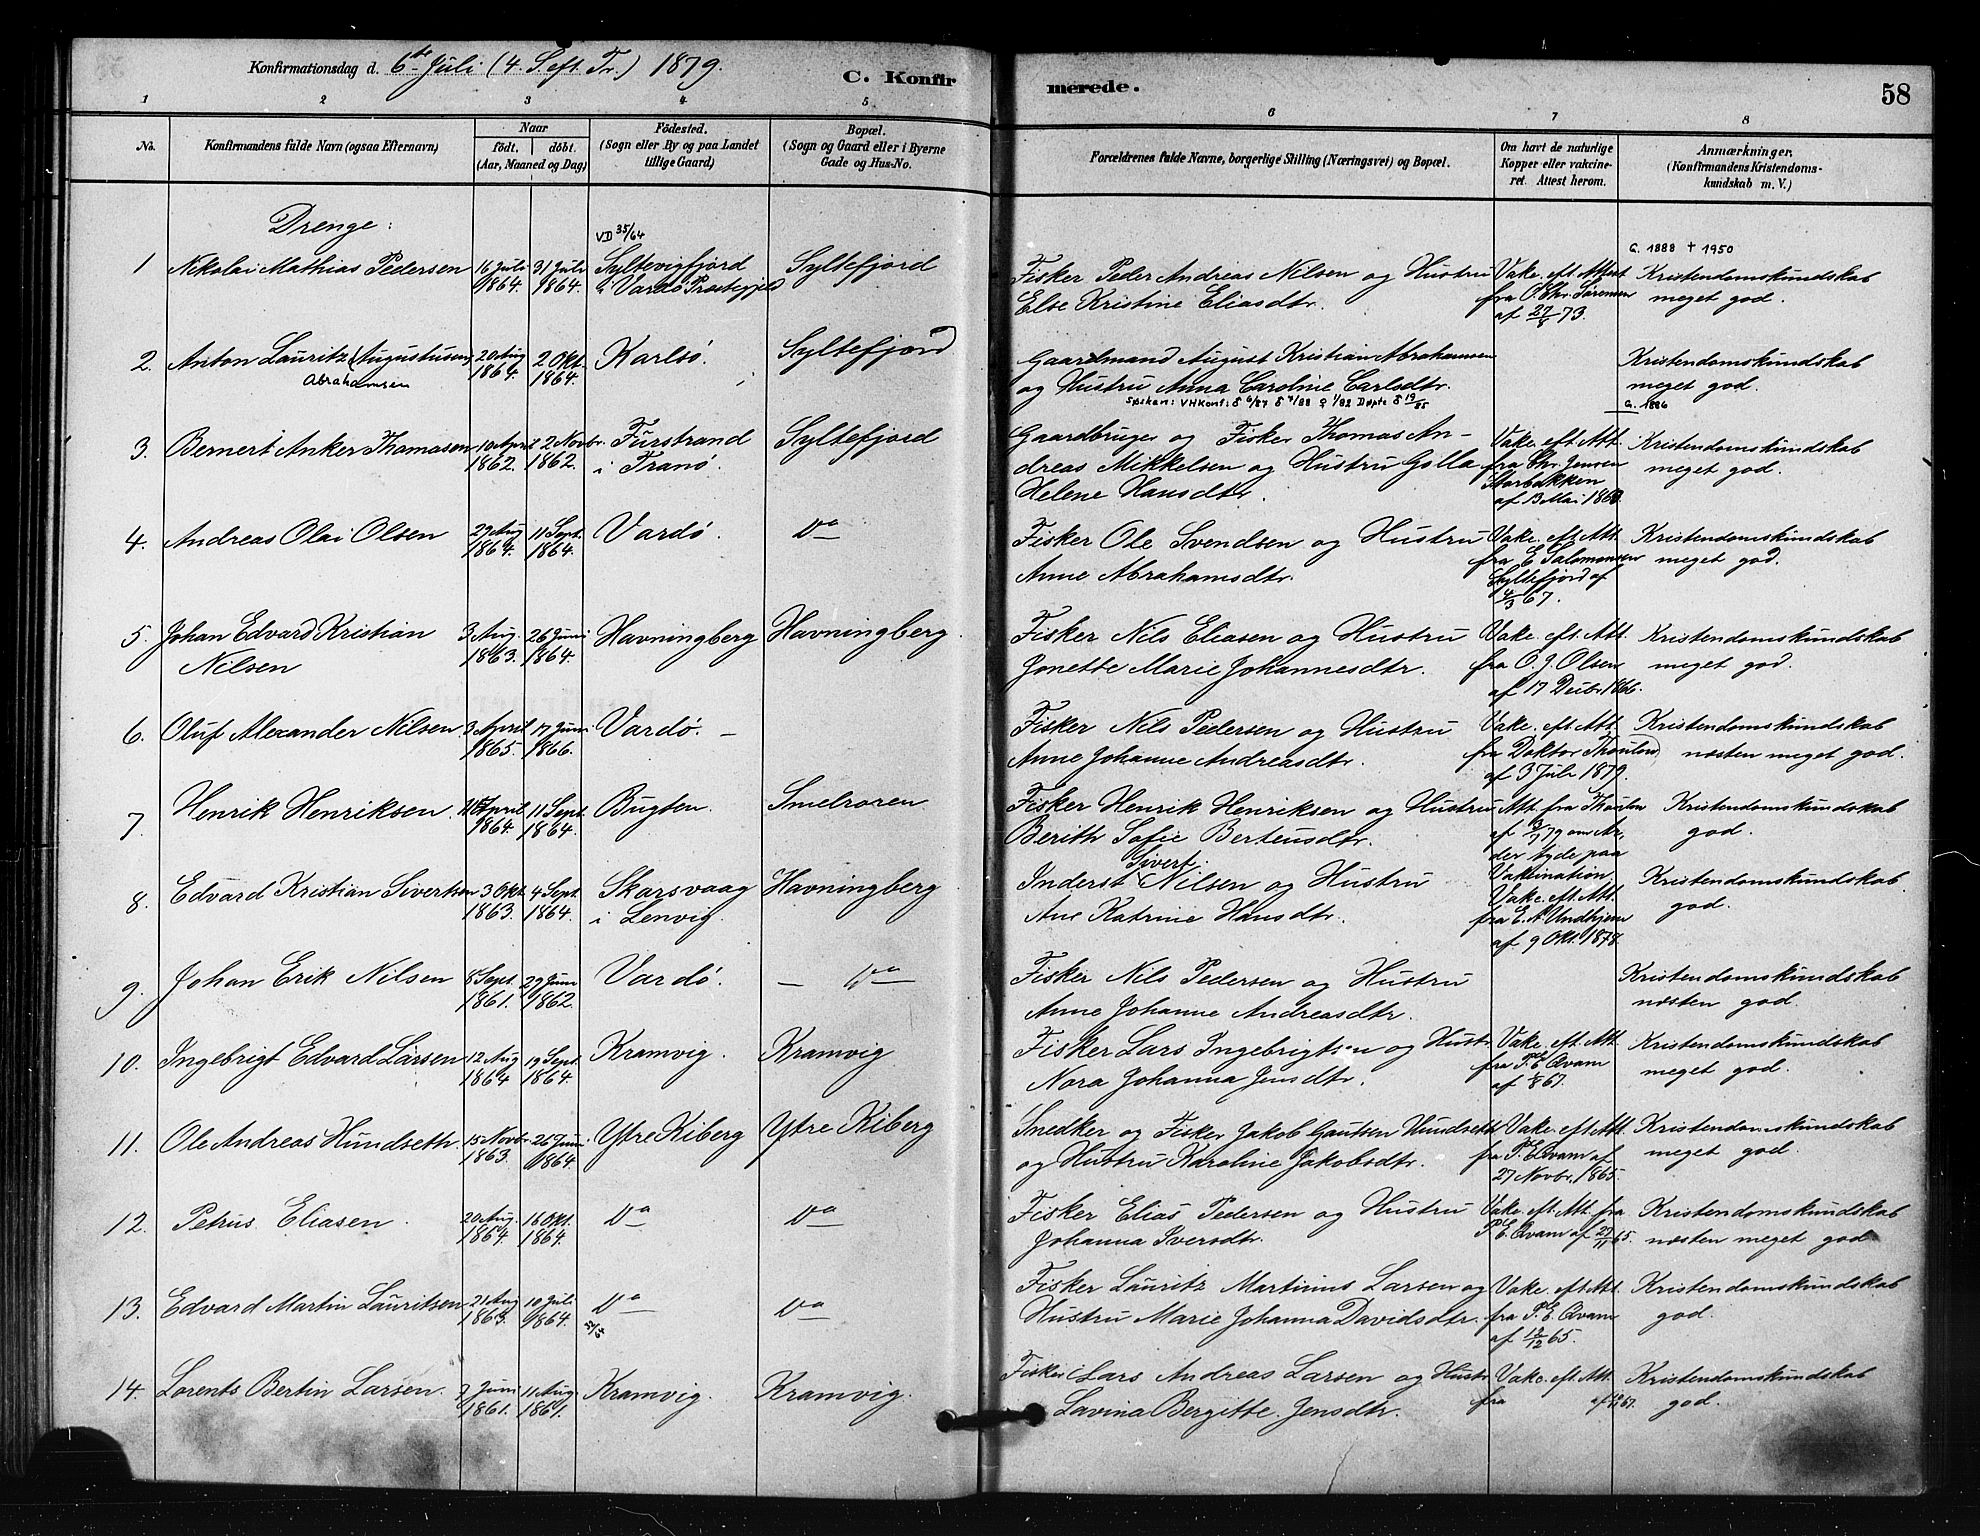 Konfirmationsdag d. 6te Juli (4. S. eft. Tr.) 1879.
C. Konfirmerede.
58
1 2 3 4 5 6 7 8
No.
Konfirmandens fulde Navn (ogsaa Efternavn)
Naar
födt. döbt.
(Aar, Maaned og Dag)
Födested.
(Sogn eller By og paa Landet
tillige Gaard)
Bopæl.
(Sogn og Gaard eller i Byerne
Gade og Hus-No.
Forældrenes fulde Navne, borgerlige Stilling (Næringsvei) og Bopæl.
Om havt de naturlige
Kopper eller vakcine-
ret. Attest herom.
Anmærkninger.
(Konfirmandens Kristendoms-
kundskab m. V.)
Drenge:
VD 35/64
G. 1888 † 1950
1 Nikolai Mathias Pedersen 16 Juli 31 Juli Syltevigfjord Syltefjord Fisker Peder Andreas Nilsen og Hustru Vakc. eft. Attest Kristendomskundskab
1864. 1864. i Vardö Præstegjeld Else Kristine Eliasdtr. fra O. Chr. Sörensen meget god.
af 27/8 73.
2. Anton Lauritz (Augustusen) 20 Aug 2 Okt. Karlsö. Syltefjord Gaardmand August Kristian Abrahamsen Kristendomskundskab
Abrahamsen 1864. 1864. og Hustru Anna Caroline Carlsdtr. meget god.
G. 1886
3. Bernert Anker Thomasen 10 April 2 Novbr. Furstrand Syltefjord Gaardbruger og Fisker Thomas An- Vakc. eft. Att. Kristendomskundskab
1862. 1862. i Tranö. dreas Mikkelsen og Hustru Golla fra Chr. Jensen meget god.
Helene Hansdtr. Storbakken
af 13 Mai
4. Andreas Olai Olsen 29 Aug 11 Sept. Vardö. Do Fisker Ole Svendsen og Hustru Vakc. eft. Att. Kristendomskundskab
1864. 1864. Anne Abrahamsdtr. fra E. Salomonsen meget god.
Syltefjord af
4/3 67.
5. Johan Edvard Kristian 3 Aug. 26 Juni Havningberg Havningberg. Fisker Nils Eliasen og Hustru Vakc. eft. Att. Kristendomskundskab
Nilsen 1863. 1864. Jonette Marie Johannesdtr. fra O. J. Olsen meget god.
af 17 Decbr 1866.
6. Oluf Alexander Nilsen 3 April 17 Juni Vardö. – Fisker Nils Pedersen og Hustru Vakc. eft. Att. Kristendomskundskab
1865. 1866. Anne Johanne Andreasdtr. fra Doktor næsten meget god.
af 3 Juli 1879.
7 Henrik Henriksen. April 11 Sept. Bugten. Smelroren Fisker Henrik Henriksen og Hustru Att. fra Kristendomskundskab
1864. 1864. Berith Sofie Berteusdtr. af 3/7 79 om Ar, god.
der tyde paa
Vakcination.
8. Edvard Kristian Sivertsen 3 Okt. 4 Sept. Skarsvaag Havningberg Inderst Sivert Nilsen og Hustru Vakc. eft. Att. Kristendomskundskab.
1863. 1864. i Lenvig. Ane Katrine Hansdtr. fra E. A. Undhjem god.
af 9 Okt. 1878.
9. Johan Erik Nilsen 8 Sept. 29 Juni Vardö. – Do Fisker Nils Pedersen og Hustru Kristendomskundskab
1861. 1862. Anne Johanne Andreasdtr. næsten god.
10. Ingebrigt Edvard Larsen 12 Aug 19 Sept. Kramvig. Kramvig Fisker Lars Ingebrigtsen og Hustr. Vakc. eft. Att. Kristendomskundskab
1864 1864. Nora Johanna Jensdtr. fra P. E. Qvam meget god.
11. Ole Andreas Hundseth. 15 Novbr. 26 Juni Ytre Kiberg Ytre Kiberg Snedker og Fisker Jakob Gautsen Hundseth Vakc. eft. Att. Kristendomskundskab
1863. 1864. og Hustru Karoline Jakobsdtr. fra P. E. Qvam af meget god.
27 Novbr. 1865.
12. Petrus Eliasen. 20 Aug. 16 Okt. Do Do Fisker Elias Pedersen og Hustru Vakc. eft. Att. fra Kristendomskundskab
1864. 1864. Johanna Iversdtr. P. E. Qvam af 27/11 65. næsten meget god
13. Edvard Martin Lauritsen 21 Aug 10 Juli Do Do Fisker Lauritz Martinus Larsen og Vakc. eft. Att. Kristendomskundskab
1863. 1864. Hustru Marie Johanna Davidsdtr. fra P. E. Qvam god.
af 12/12 65.
14. Lorents Bertin Larsen. 7 Juni 11 Aug Kramvig. Kramvig. Fisker Lars Andreas Larsen og Hustr. Vakc. eft. Att. Kristendomskundskab
1861. 1861. Lavina Bergitte Jensdtr. fra god.